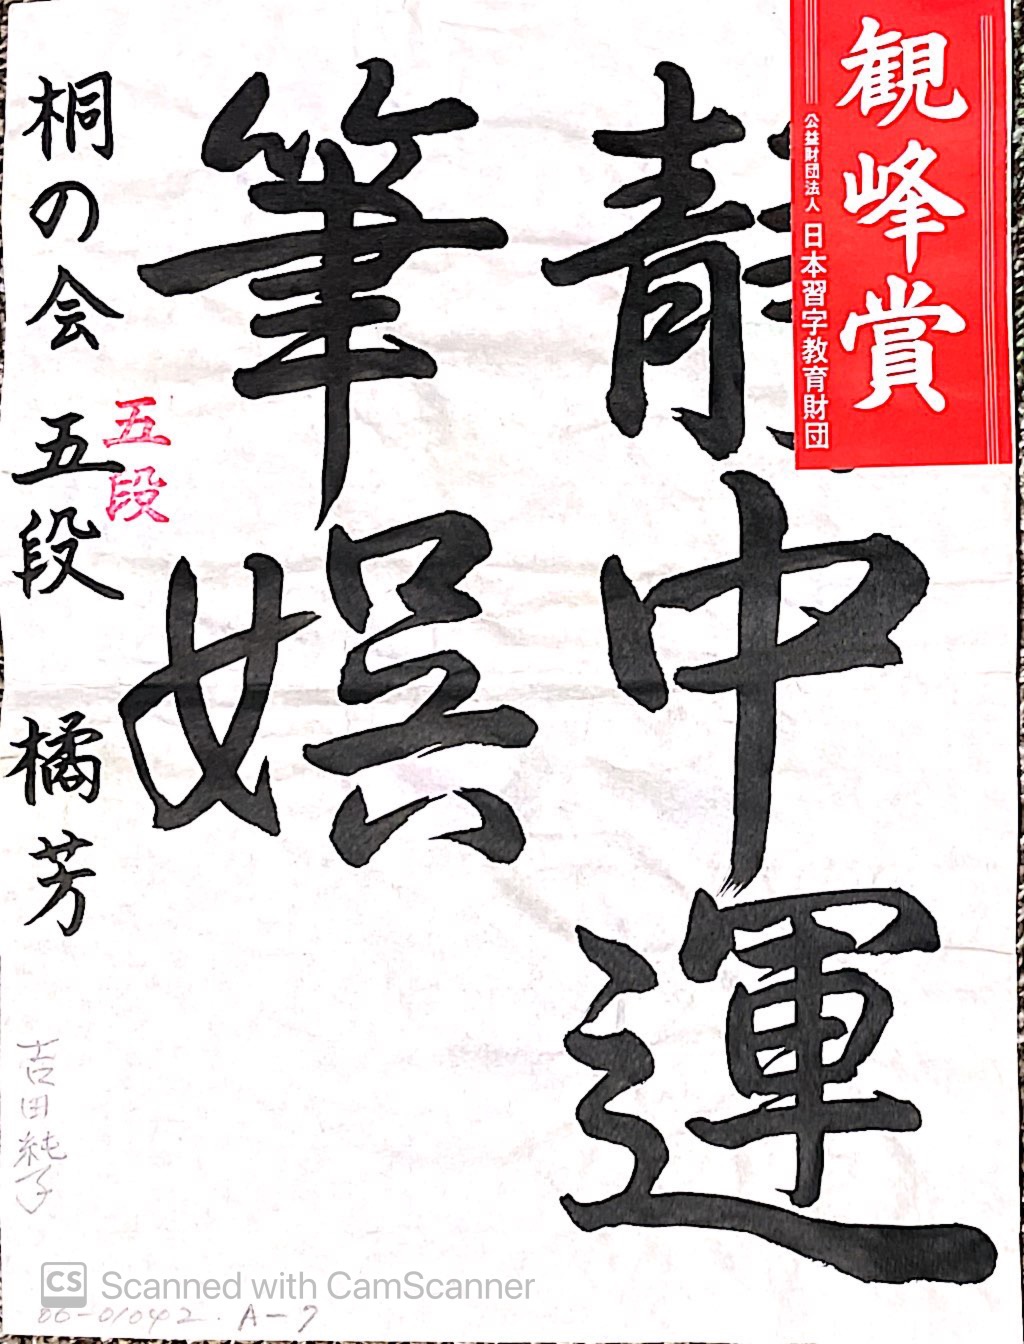 観峰賞
公益財団法人 日本習字教育財団
静中運
筆娯
桐の会 五段 橘芳
五段
吉田純子
CS Scanned with CamScanner
06-01042. A-7